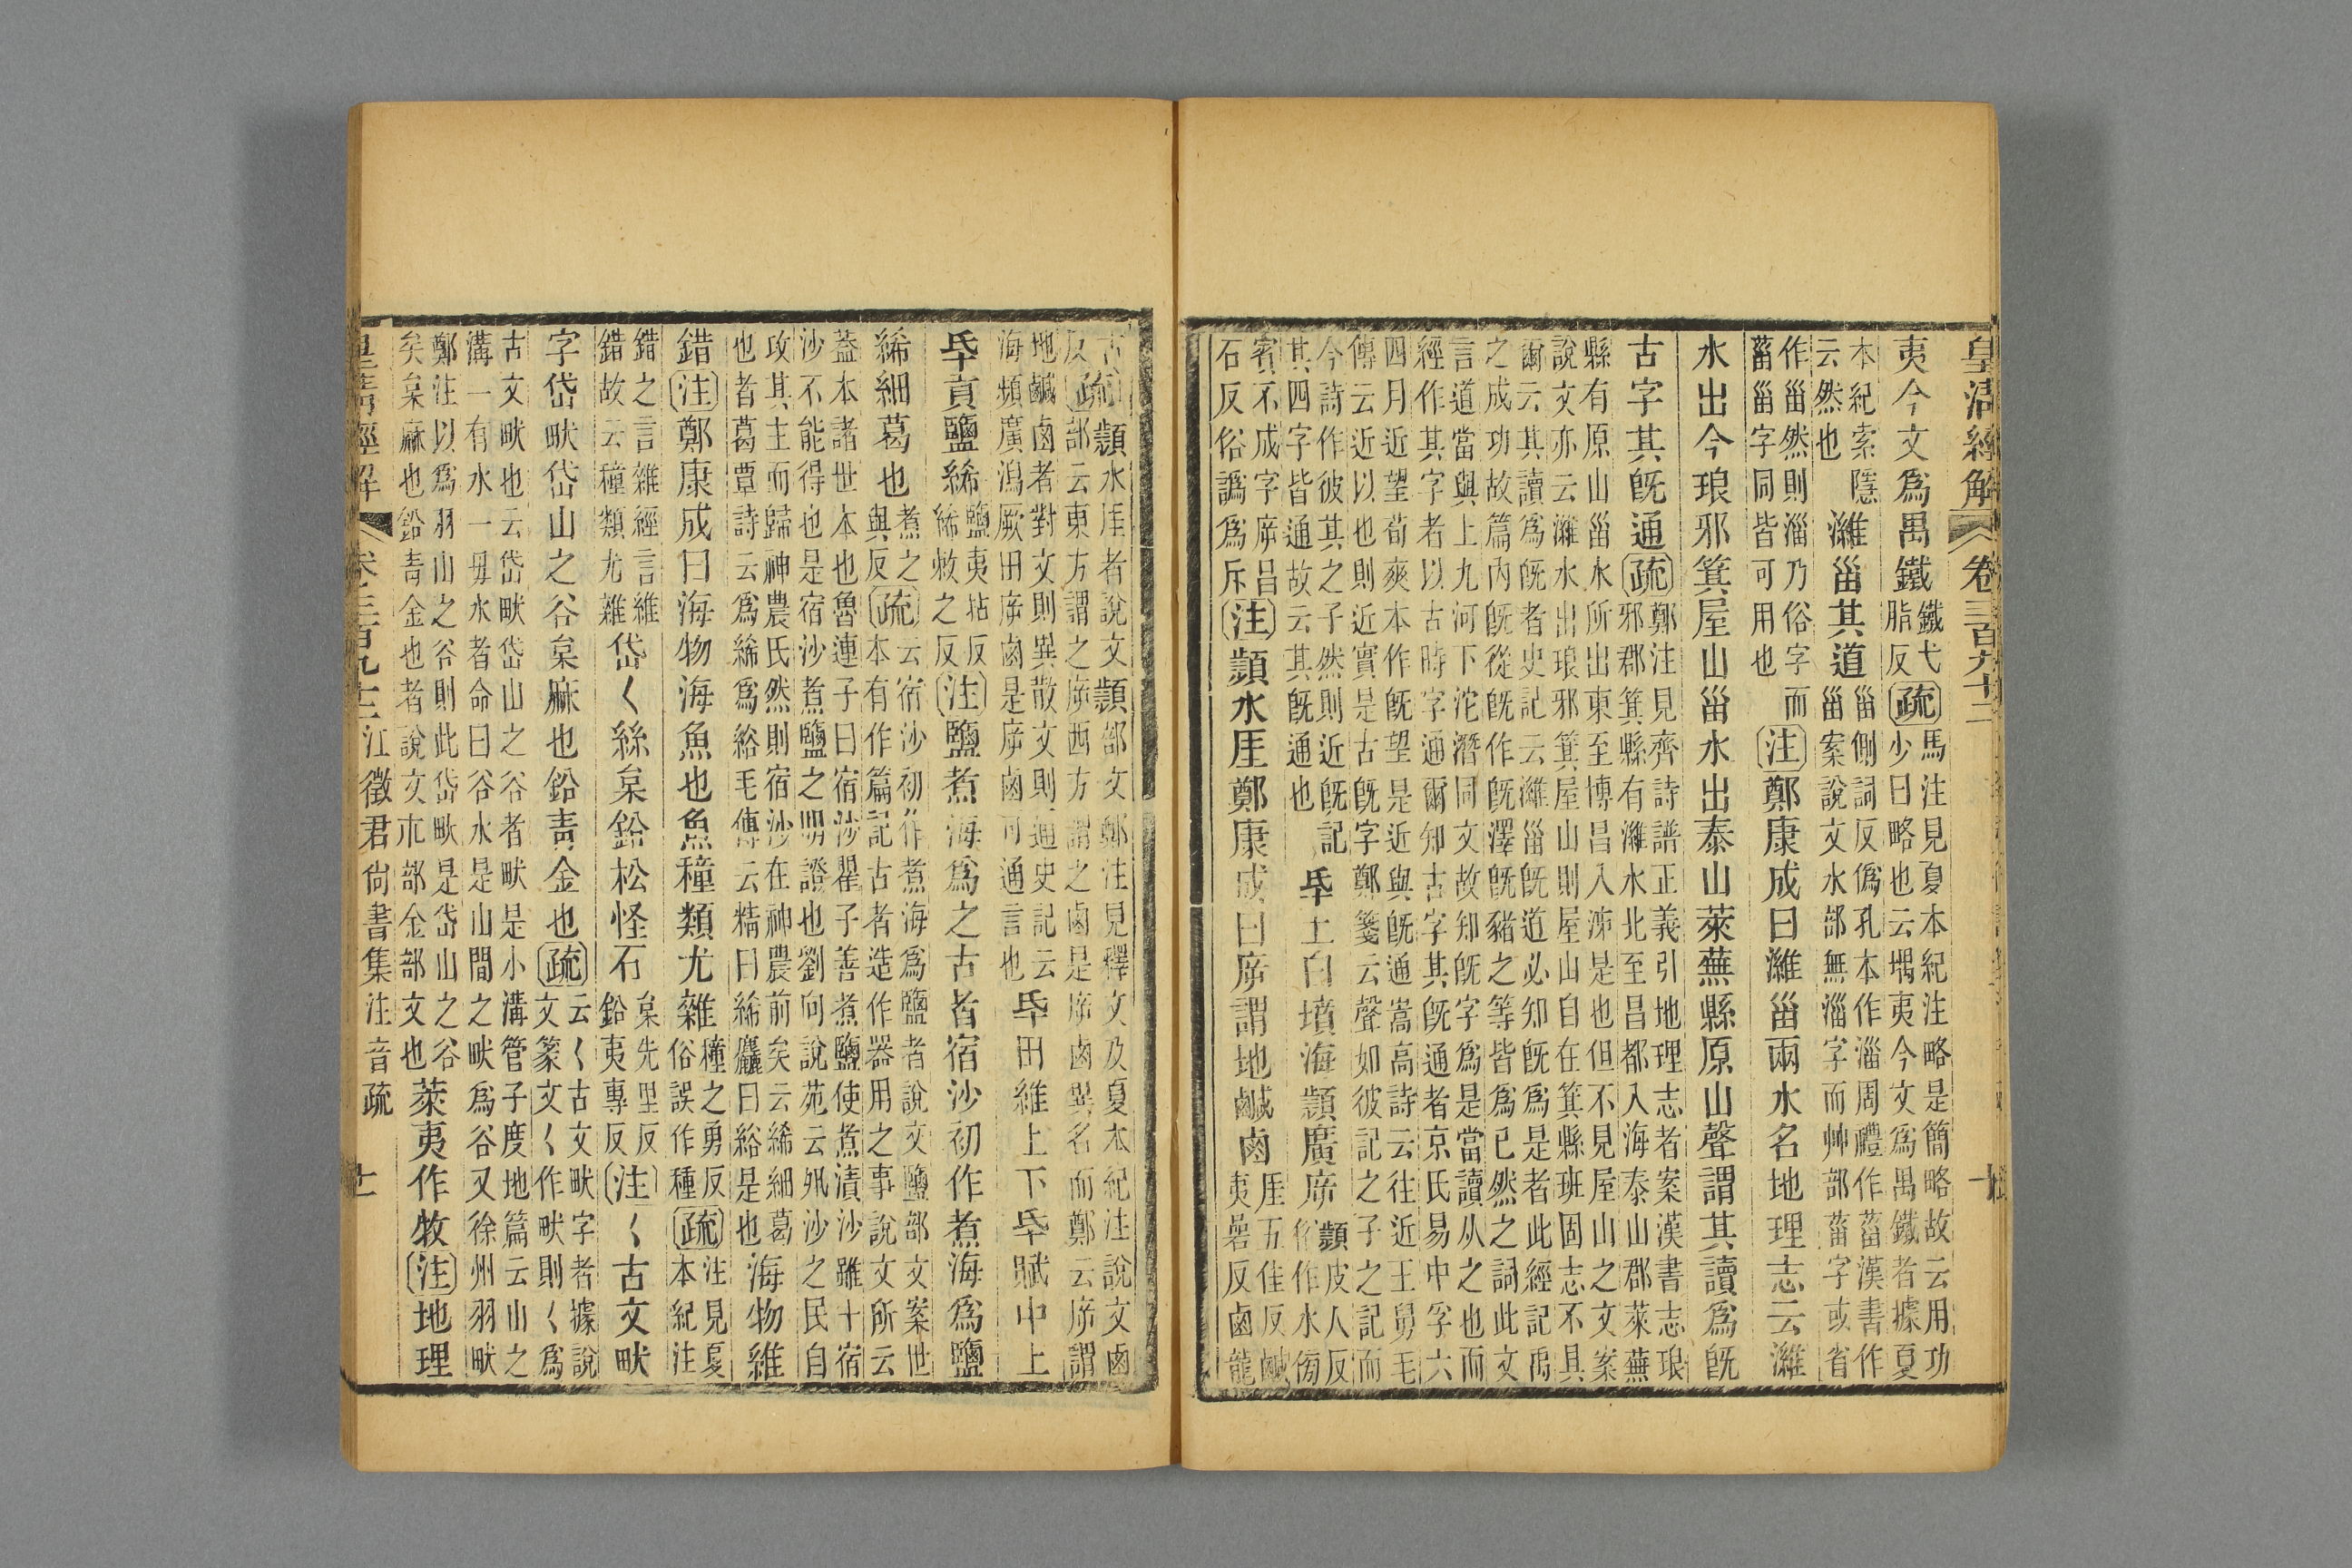 皇清經解 卷三百九十二 十
夷今文爲禺鐵鐵弋脂反疏馬注見夏本紀注略是簡略故云用功少曰略也云堣夷今文爲禺鐵者據夏
本紀索隱云然也濰甾其道甾側詞反僞孔本作淄周禮作菑漢書作甾案說文水部無淄字而艸部菑字或省
作甾然則淄乃俗字而菑甾字同皆可用也注鄭康成曰濰甾兩水名地理志云濰
水出今琅邪箕屋山甾水出泰山萊蕪縣原山聲謂其讀爲旣
古字其旣通疏鄭注見齊詩譜正義引地理志者案漢書志琅邪郡箕縣有濰水北至昌都入海泰山郡萊蕪
縣有原山甾水所出東至博昌入泲是也但不見屋山之文案說文亦云濰水出琅邪箕屋山則屋山自在箕縣班固志不具
爾云其讀爲旣者史記云濰甾旣道必知旣爲是者此經記禹之成功故篇內旣從旣作旣澤旣豬之等皆爲已然之詞此文
言道當與上九河下沱潛同文故知旣字爲是當讀从之也而經作其字者以古時字通爾知古字其旣通者京氏易中孚六
四月近望荀爽本作旣望是近與旣通嵩高詩云往近王舅毛傳云近以也則近實是古旣字鄭箋云聲如彼記之子之記而
今詩作彼其之子然則近旣記其四字皆通故云其旣通也氒土白墳海頻廣㡿頻皮人反俗作水傍
賓不成字㡿昌石反俗譌爲斥注頻水厓鄭康成曰㡿謂地鹹鹵厓五佳反鹹夷喦反鹵龍
古反疏頻水厓者說文頻部文鄭注見釋文及夏本紀注說文鹵部云東方謂之㡿西方謂之鹵是㡿鹵異名而鄭云㡿謂
地鹹鹵者對文則異散文則通史記云海頻廣瀉厥田㡿鹵是㡿鹵可通言也氒田維上下氒賦中上
氒貢鹽絺鹽夷坫反絺敕之反注鹽煑海爲之古者宿沙初作煑海爲鹽
絺細葛也煑之與反疏云宿沙初作煑海爲鹽者說文鹽部文案世本有作篇記古者造作器用之事說文所云
葢本諸世本也魯連子曰宿沙瞿子善煑鹽使煑漬沙雖十宿沙不能得也是宿沙煑鹽之明證也劉向說苑云夙沙之民自
攻其主而歸神農氏然則宿沙在神農前矣云絺細葛也者葛覃詩云爲絺爲綌毛傳云精曰絺麤曰綌是也海物維
錯注鄭康成曰海物海魚也魚穜類尤雜穜之勇反俗誤作種疏注見夏本紀注
錯之言雜經言維錯故云穜類尤雜岱𡿨絲枲鉛松怪石枲先里反鉛夷專反注𡿨古文畎
字岱畎岱山之谷枲麻也鉛青金也疏云𡿨古文畎字者據說文篆文𡿨作畎則𡿨爲
古文畎也云岱畎岱山之谷者畎是小溝管子度地篇云山之溝一有水一毋水者命曰谷水是山間之畎爲谷又徐州羽畎
鄭注以爲羽山之谷則此岱畎是岱山之谷矣枲麻也鉛青金也者說文𣎳部金部文也萊夷作牧注地理
皇清經解 卷三百九十二 江徵君尚書集注音疏 十一